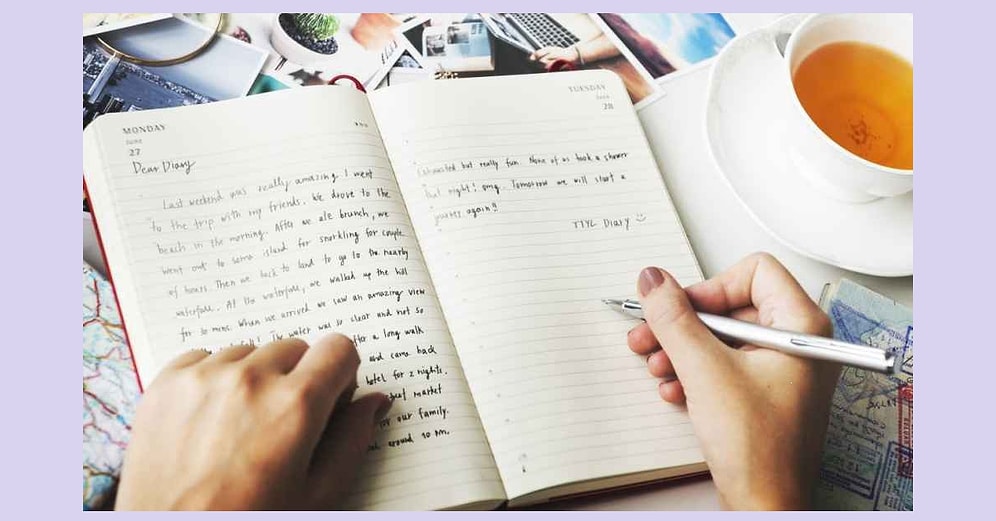 MONDAY
June
27
Dear Diary
Last weekend was really amazing I went
to the trip with my friends. We drove to the
beach in the morning. After we ate brunch, we
went out to some island for snorkling for couple
of hours. Then we back to land to go to the nearby
waterfall. At the waterfall, we walked up the hill
for 30 mins. When we arrived we saw an amazing view
! The water was so clear and not so
a long walk
and came back
hotel for 2 nights.
market
for our family.
around 10 pm.
TUESDAY
June
28
Exhausted but really fun. None of us took a shower
that night! omg. Tomorrow we will start a
journey again!!
TTYL Diary